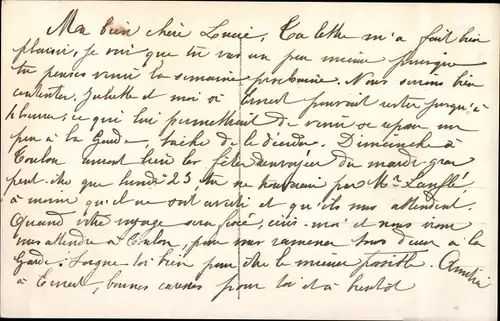 Ma bien chère Lucie, Ta lettre m'a fait bien
plaisir, je vois que tu vas un peu mieux puisque
tu penses venir la semaine prochaine. Nous serions bien
contentes, Juliette et moi si Ernest pourrait rester jusqu'à
ce que lui permettrait de venir se reposer un
peu à la Garde, tache de le décider. Dimanche à
Toulon auront lieu les fêtes du mardi-gras
peut-être que lundi 23, tu ne trouverais pas Mr
à moins qu'il ne soit averti et qu'ils vous attendent.
Quand votre voyage sera fixé, écris-moi et nous irons
vous attendre à Toulon, pour vous ramener tous deux à la
Garde. Soigne-toi bien pour être le mieux possible. Amitié
à Ernest, bonnes caresses pour toi et à bientôt